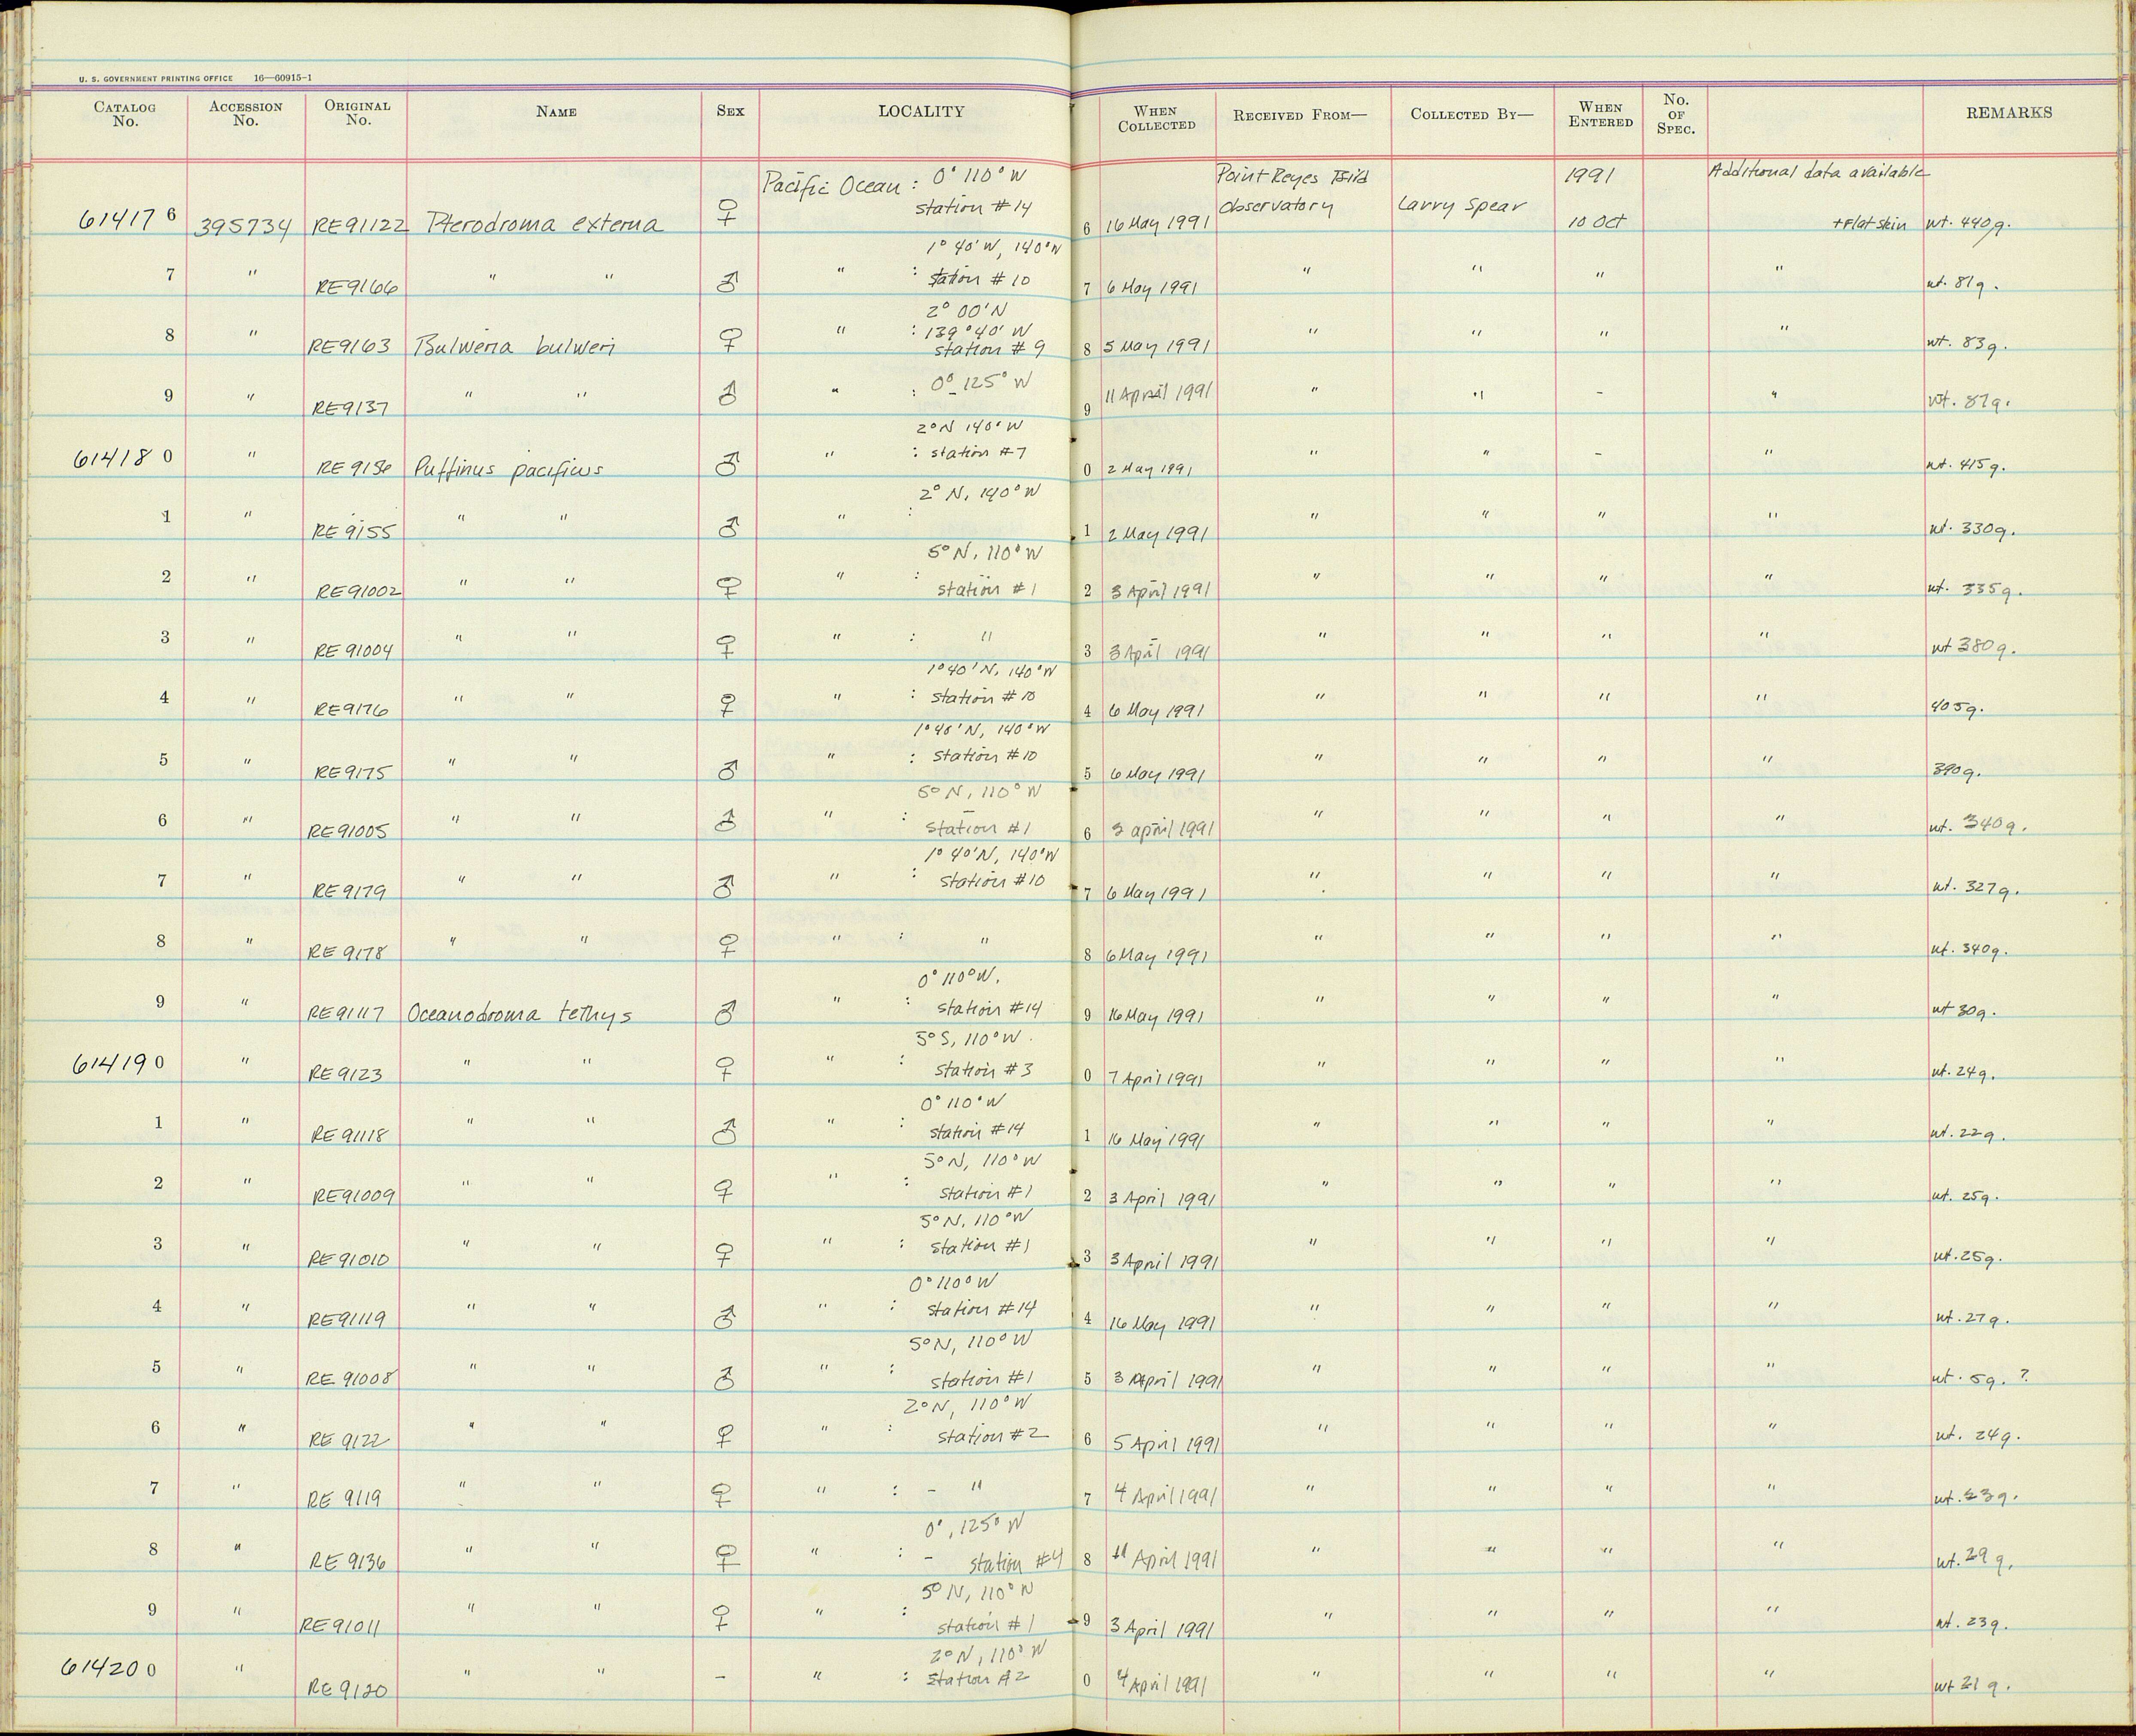 U. S. GOVERNMENT PRINTING OFFICE 16—60915-1
CATALOG No. ACCESSION No. ORIGINAL No. NAME SEX LOCALITY WHEN COLLECTED RECEIVED FROM— COLLECTED BY— WHEN ENTERED No. OF SPEC. REMARKS
Pacific Ocean : 0° 110° W Point Reyes Bird 1991 Additional data available
station #14 Observatory Larry Spear
614176 395734 RE91122 Pterodroma externa ♀ 6 16 May 1991 10 Oct + Flat skin wt. 440g.
1° 40' W, 140° N
7 " RE9166 " " ♂ " : station # 10 7 6 May 1991 " " " " wt. 81g.
2° 00' N
" : 139° 40' W
8 " RE9163 Bulweria bulweri ♀ station # 9 8 5 May 1991 " " " " wt. 83g.
9 " RE9137 " " ♂ " : 0° 125° W 9 11 April 1991 " " - " wt. 87g.
2° N 140° W
614180 " RE 9156 Puffinus pacificus ♂ " : station #7 0 2 May 1991 " " - " wt. 415g.
2° N, 140° W
1 " RE 9155 " " ♂ " : 1 2 May 1991 " " " " wt. 330g.
5° N, 110° W
2 " RE91002 " " ♀ " : station #1 2 3 April 1991 " " " " wt. 335g.
3 " RE 91004 " " ♀ " : " 3 3 April 1991 " " " " wt 380g.
1° 40' N, 140° W
4 " RE9176 " " ♀ " : station # 10 4 6 May 1991 " " " " 405g.
1° 40' N, 140° W
5 " RE9175 " " ♂ " : station #10 5 6 May 1991 " " " " 390g.
5° N, 110° W
6 " RE91005 " " ♂ " : station #1 6 3 april 1991 " " " " wt. 340g.
1° 40' N, 140° W
7 " RE9179 " " ♂ " : station #10 7 6 May 1991 " " " " wt. 327g.
8 " RE 9178 " " ♀ " : " 8 6 May 1991 " " " " wt. 340g.
0° 110° W.
9 " RE91117 Oceanodroma tethys ♂ " : station #14 9 16 May 1991 " " " " wt 30g.
5° S, 110° W.
614190 " RE 9123 " " ♀ " : station # 3 0 7 April 1991 " " " " wt. 24g.
0° 110° W
1 " RE 91118 " " ♂ " : station #14 1 16 May 1991 " " " " wt. 22g.
5° N, 110° W
2 " RE91009 " " ♀ " : station #1 2 3 April 1991 " " " " wt. 25g.
5° N, 110° W
3 " RE 91010 " " ♀ " : station #1 3 3 April 1991 " " " " wt. 25g.
0° 110° W
4 " RE91119 " " ♂ " : station #14 4 16 May 1991 " " " " wt. 27g.
5° N, 110° W
5 " RE 91008 " " ♂ " : station #1 5 3 April 1991 " " " " wt. 5g. ?
2° N, 110° W
6 " RE 9122 " " ♀ " : station #2 6 5 April 1991 " " " " wt. 24g.
7 " RE 9119 " " ♀ " : - " 7 4 April 1991 " " " " wt. 23g.
0°, 125° W
8 " RE 9136 " " ♀ " : - station #4 8 11 April 1991 " " " " wt. 29g.
5° N, 110° W
9 " RE91011 " " ♀ " : station #1 9 3 April 1991 " " " " wt. 23g.
2° N, 110° W
614200 " RE 9120 " " - " : station #2 0 4 April 1991 " " " " wt 21g.